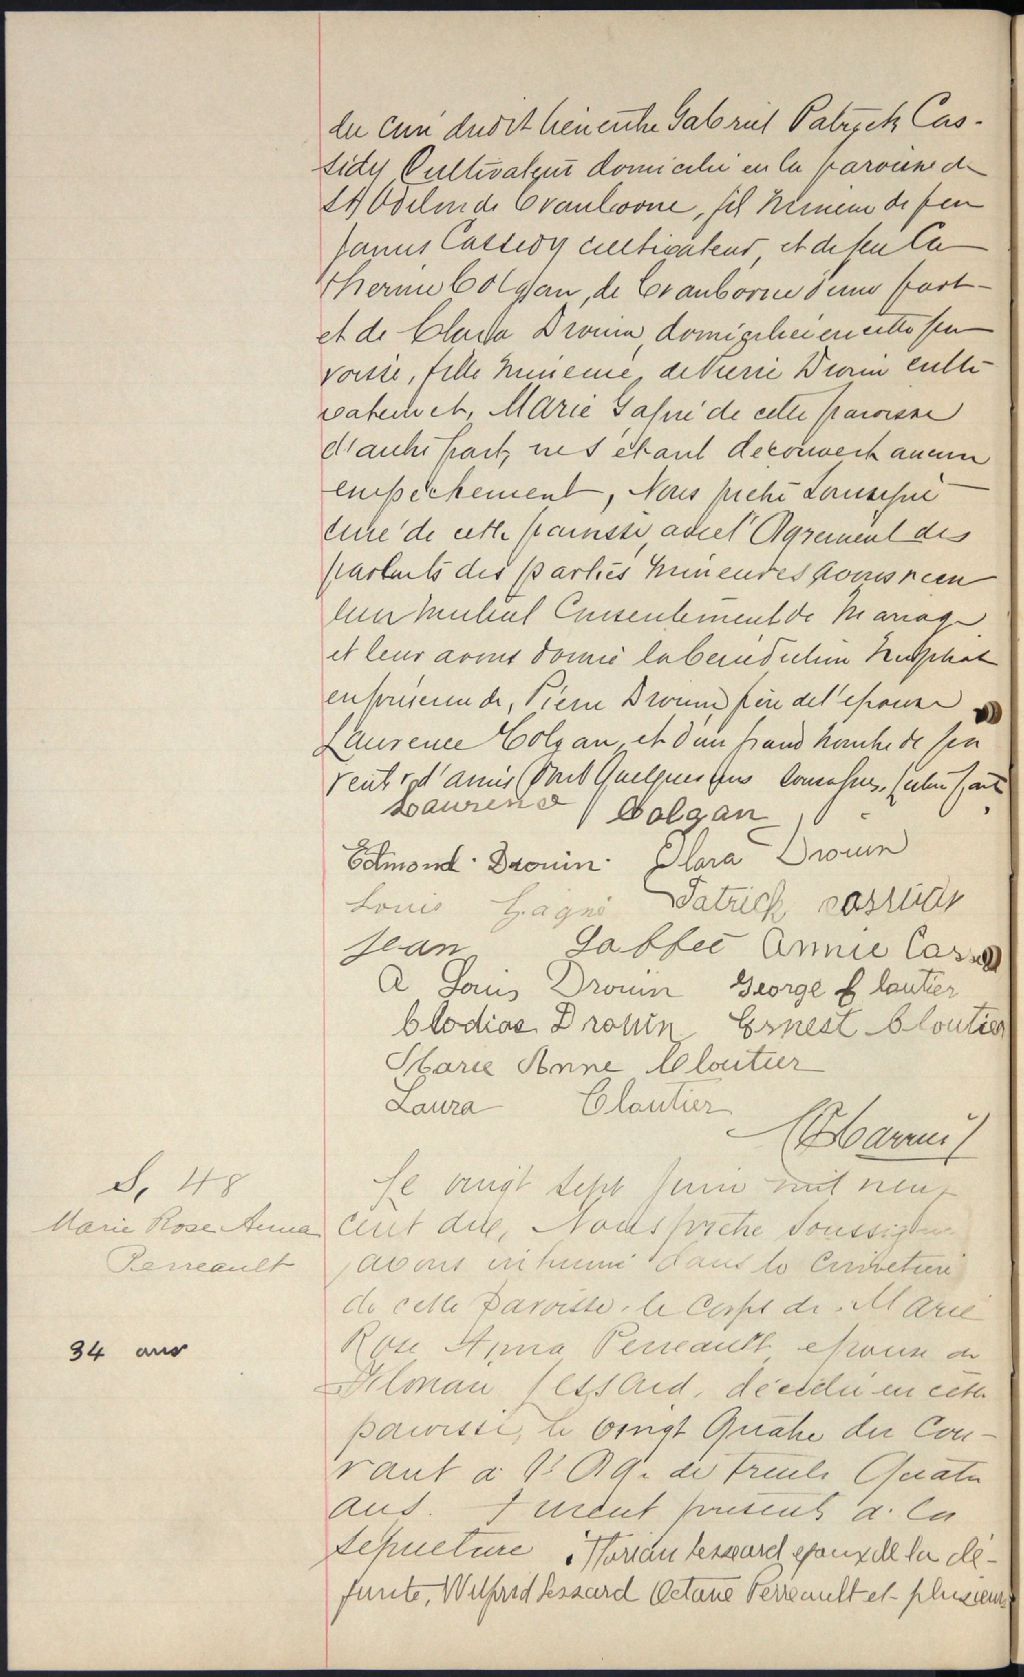 du curé du dit lieu entre Gabriel Patrick Cas-
sidy Cultivateur domicilié en la paroisse de
St Odilon de Cranborne, fils mineur de feu
James Cassidy cultivateur, et de feu Ca-
therine Colgan, de Cranborne d'une part
et de Clara Drouin, domiciliée en cette pa
roisse, fille mineure, de Pierre Drouin culti
vateur et, Marie Gagné de cette paroisse
d'autre part, ne s'étant découvert aucun
empêchement, Nous prêtre soussigné
curé de cette paroisse, avec l'Agrément des
parents des parties mineures avons reçu
leur mutuel Consentement de Mariage
et leur avons donné la bénédiction Nuptiale
en présence de, Pierre Drouin père de l'épouse
Laurence Colgan, et d'un grand nombre de pa
rents & d'amis dont Quelques uns
Laurence Colgan
Edmond Drouin. Clara Drouin
Louis Gagné Patrick Cassidy
Jean Annie Cas
A Louis Drouin George Cloutier
Clodias Drouin Ernest Cloutier
Marie Anne Cloutier
Laura Cloutier
S, 48
Marie Rose Anna
Perreault
34 ans
Le vingt sept Juin mil neuf
cent dix, Nous prêtre Soussigné
avons inhumé dans le Cimetière
de cette paroisse, le Corps de Marie
Rose Anna Perreault, épouse de
Florian Lessard, décédée en cette
paroisse, le vingt Quatre du Cou-
rant à l'Age de trente Quatre
ans. Furent présents à la
sépulture : Florian Lessard époux de la dé-
funte, Wilfrid Lessard Octave Perreault et plusieurs